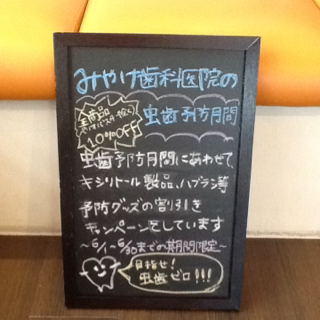 みやけ歯科医院の
虫歯予防月間
全商品
10%OFF
虫歯予防月間にあわせて、
キシリトール製品、ハブラシ等
予防グッズの割引き
キャンペーンをしています
〜6/1〜6/30までの期間限定〜
目指せ!
虫歯ゼロ!!!